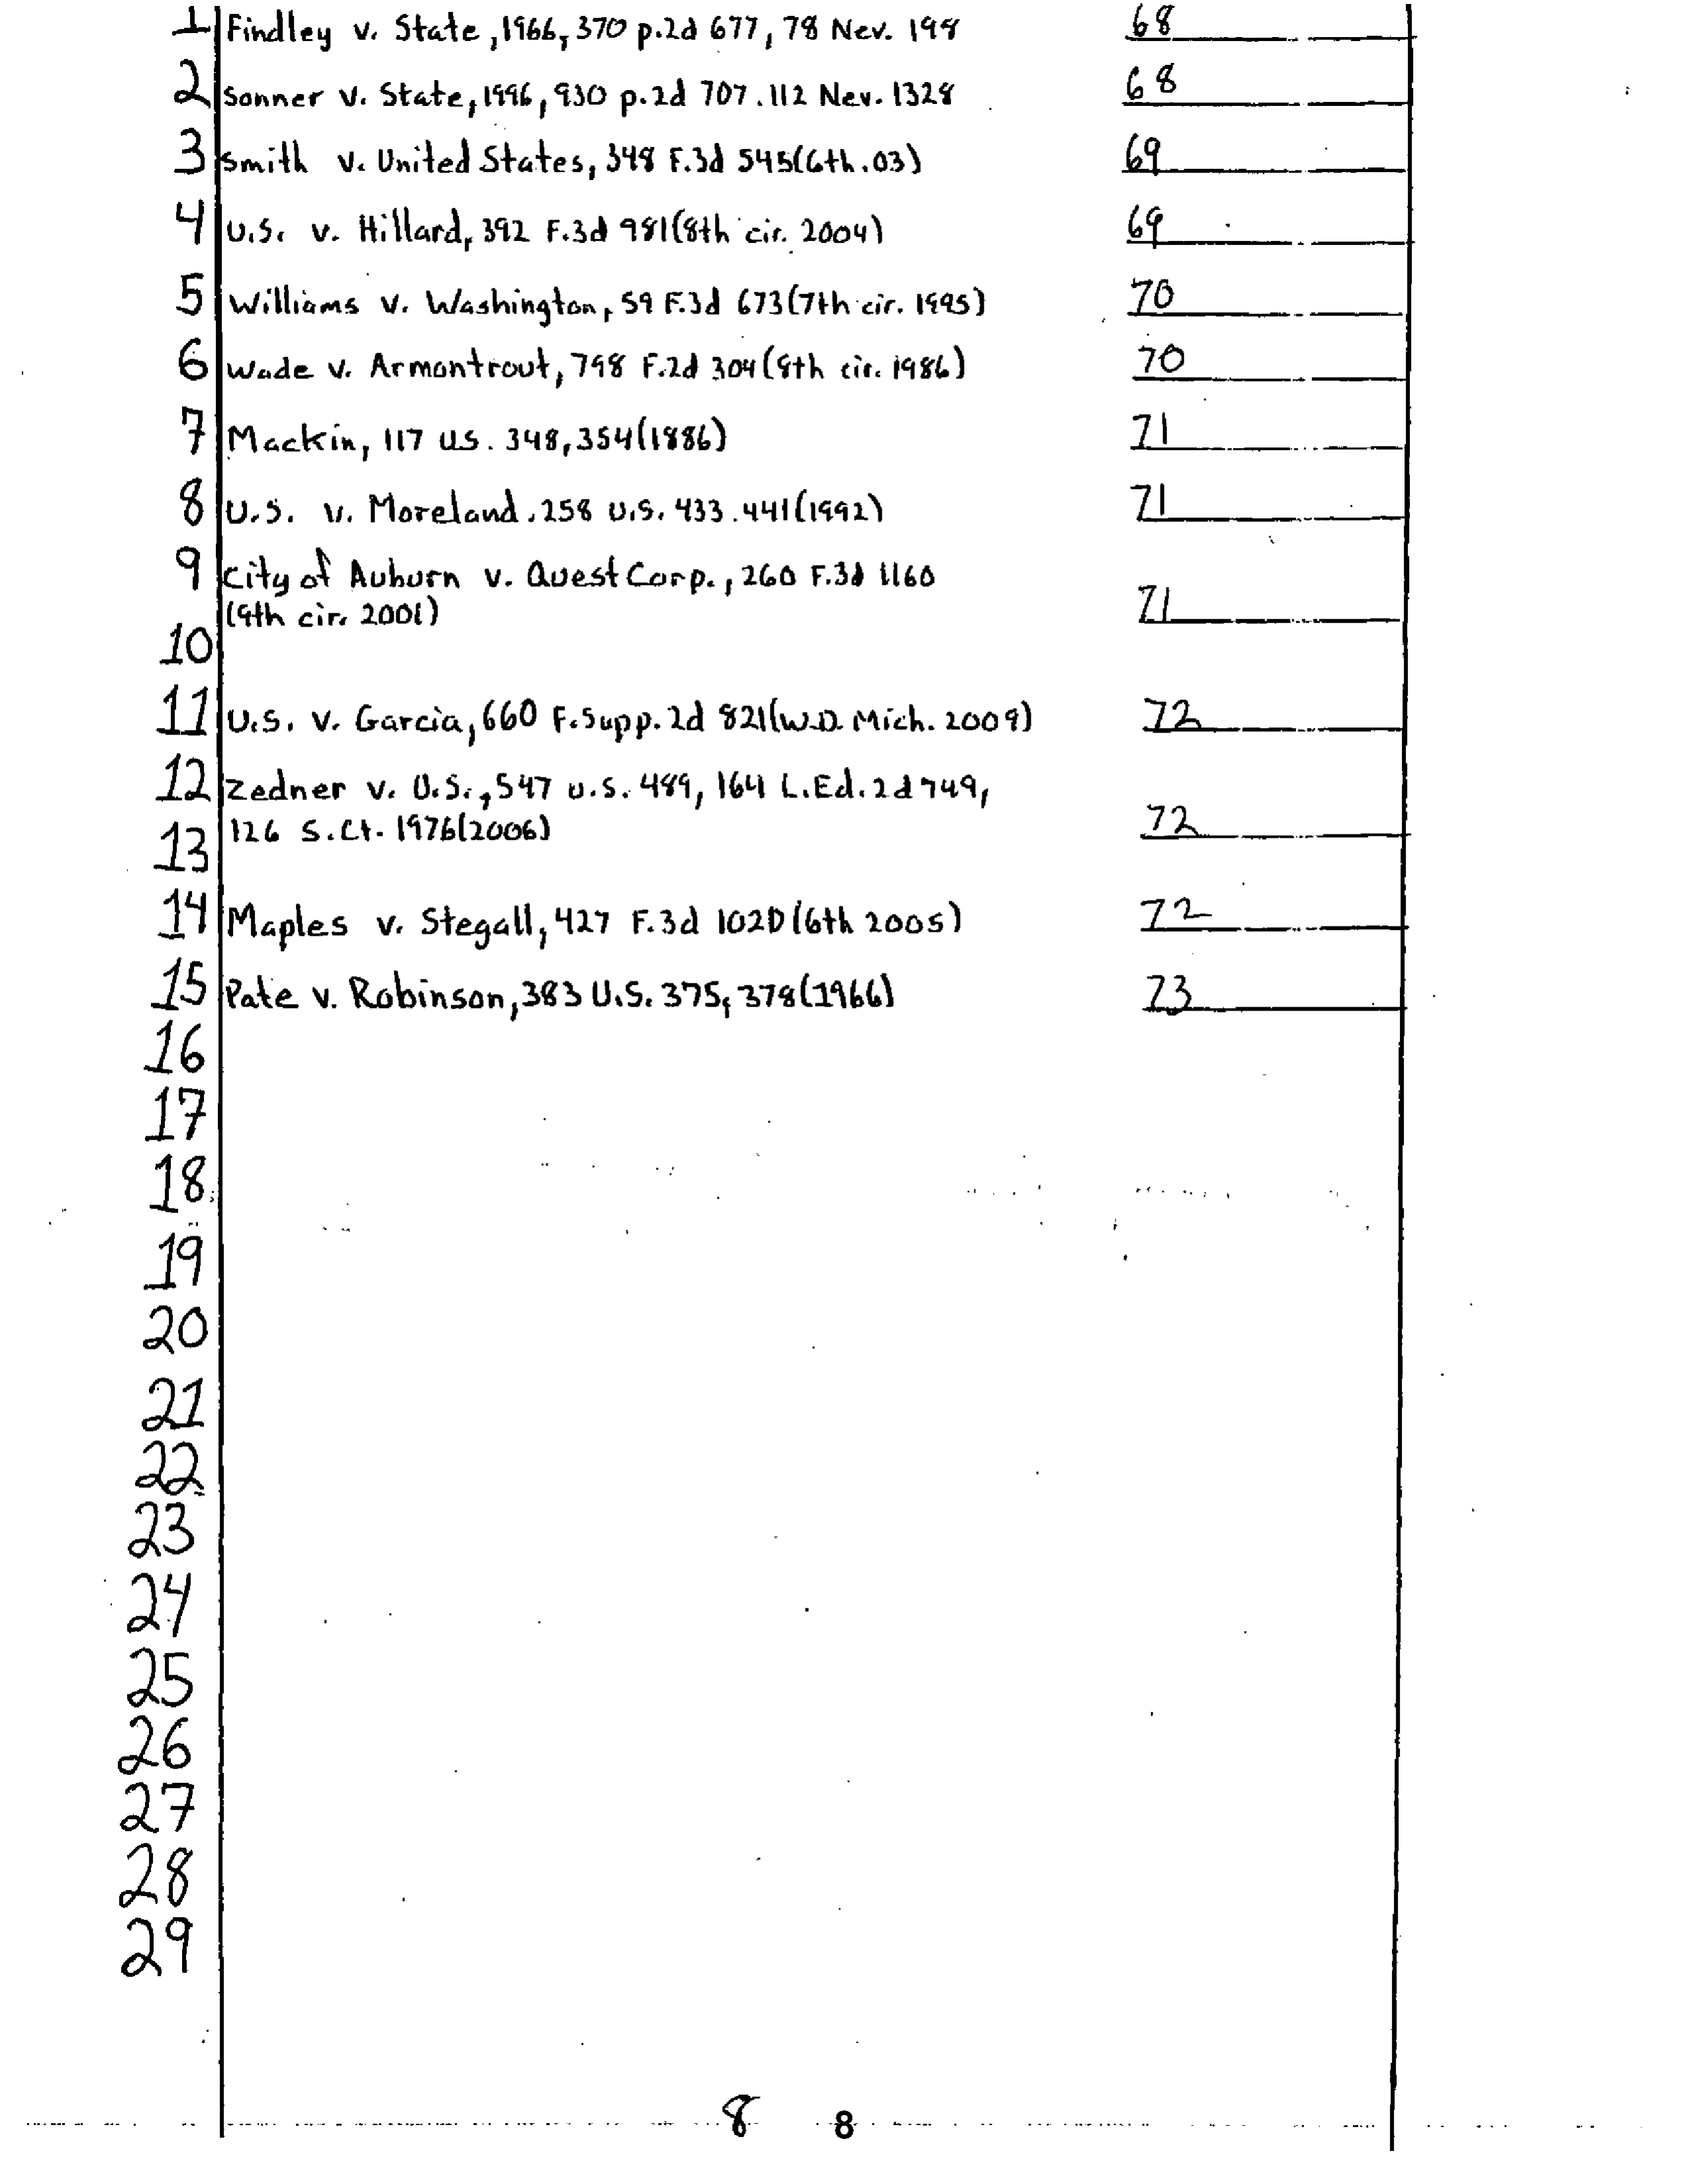 1 Findley v. State, 1966, 370 p.2d 677, 78 Nev. 198 68
2 Sonner v. State, 1996, 930 p.2d 707. 112 Nev. 1328 68
3 Smith v. United States, 348 F.3d 545(6th.03) 69
4 U.S. v. Hillard, 392 F.3d 981(8th cir. 2004) 69
5 Williams v. Washington, 59 F.3d 673(7th cir. 1995) 70
6 Wade v. Armontrout, 798 F.2d 304(8th cir. 1986) 70
7 Mackin, 117 us. 348, 354(1886) 71
8 U.S. v. Moreland. 258 U.S. 433.441(1992) 71
9 City of Auburn v. Quest Corp., 260 F.3d 1160
(9th cir. 2001) 71
10
11 U.S. v. Garcia, 660 F.Supp.2d 821(W.D. Mich. 2009) 72
12 Zedner v. U.S., 547 u.s. 489, 164 L.Ed.2d 749,
13 126 S.Ct. 1976(2006) 72
14 Maples v. Stegall, 427 F.3d 1020(6th 2005) 72
15 Pate v. Robinson, 383 U.S. 375, 378(1966) 73
16
17
18
19
20
21
22
23
24
25
26
27
28
29
8 8